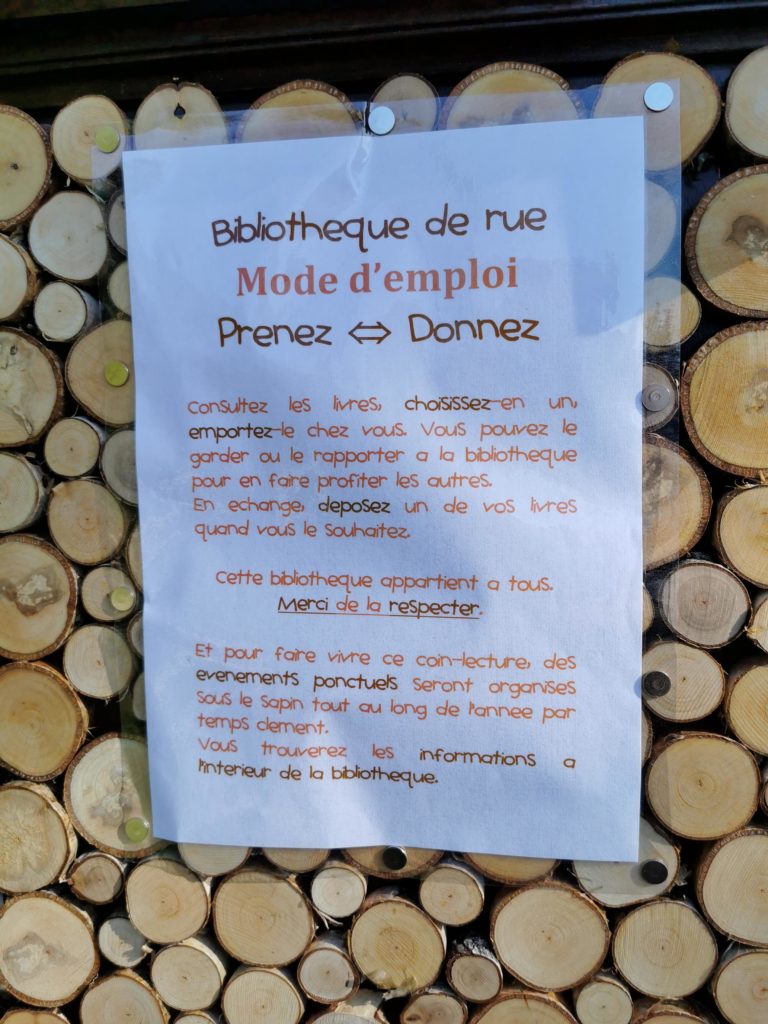 Bibliotheque de rue
Mode d'emploi
Prenez ⇔ Donnez
Consultez les livres, choisissez-en un,
emportez-le chez vous. Vous pouvez le
garder ou le rapporter a la bibliotheque
pour en faire profiter les autres.
En echange, deposez un de vos livres
quand vous le souhaitez.
Cette bibliotheque appartient a tous.
Merci de la respecter.
Et pour faire vivre ce coin-lecture, des
evenements ponctuels seront organises
sous le sapin tout au long de l'annee par
temps clement.
Vous trouverez les informations a
l'interieur de la bibliotheque.